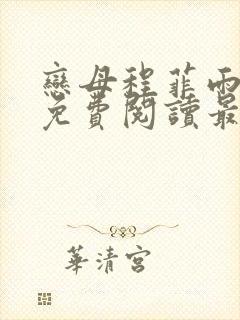 戀母程菲雨
免費閱讀最
華清宮